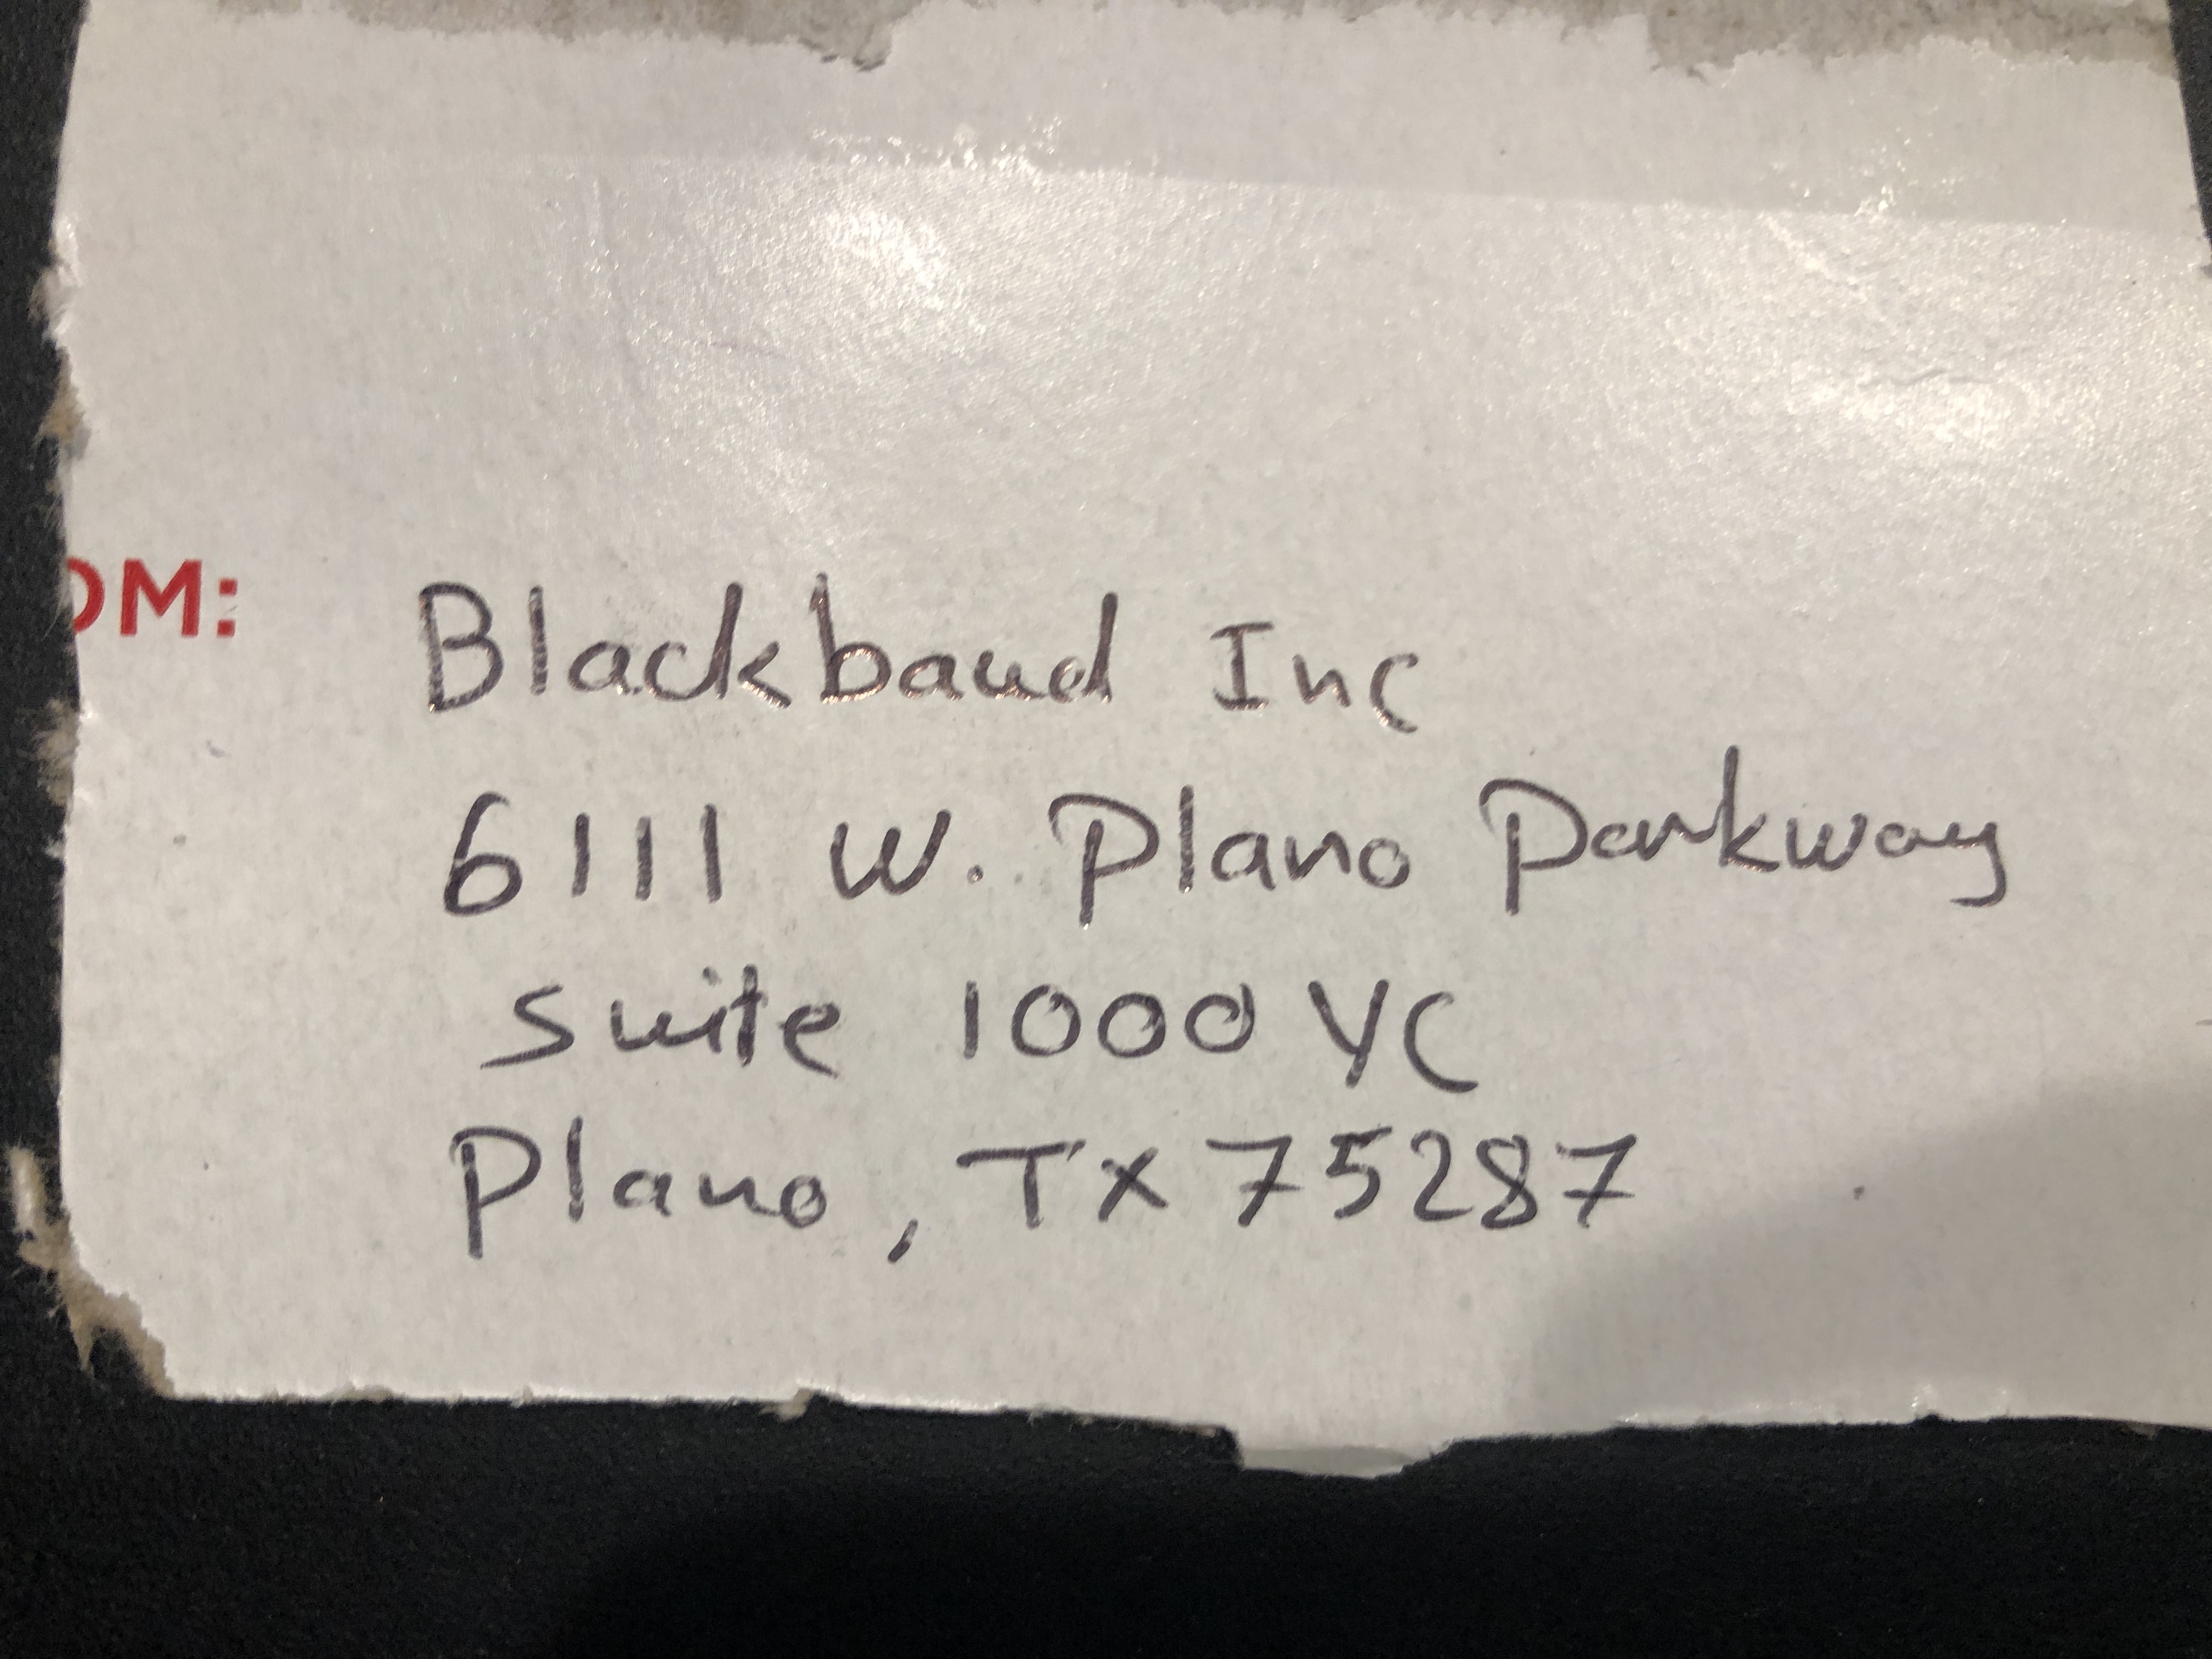 OM:
Blackbaud Inc
6111 W. Plano Parkway
Suite 1000 YC
Plano, TX 75287